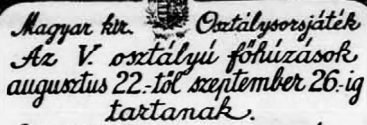 Magyar kir. Osztálysorsjáték
Az V. osztályú főhúzások
augusztus 22.-től szeptember 26.-ig
tartanak.